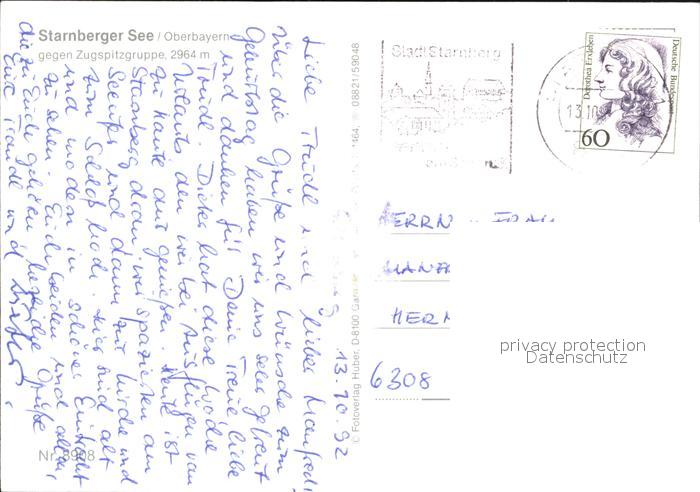 Starnberger See / Oberbayern
gegen Zugspitzgruppe, 2964 m
Liebe Trudl und lieber Manfred!
13.10.92
Über die Grüße und Wünsche zum
Geburtstag haben wir uns sehr gefreut
und danken für Deine Treue liebe
Trudl. Dieter hat diese Woche
Urlaub den wir bei Ausflügen von
zu Hause aus genießen. Heute ist
Starnberg dran wir spazieren am
Seeufer und dann zur Kirche und
zum Schloß hoch. Hier sind alt
und modern in schöner Eintracht
zu sehen. Euch beiden und allen,
die zu Euch gehören herzliche Grüße
Eure Traudl und Dieter.
Nr. 8908
© Fotoverlag Huber, D-8100
08821/59048
Stadt Starnberg
13.10.
Dorothea Erxleben
Deutsche Bundespost
60
HERRN
6308
privacy protection
Datenschutz